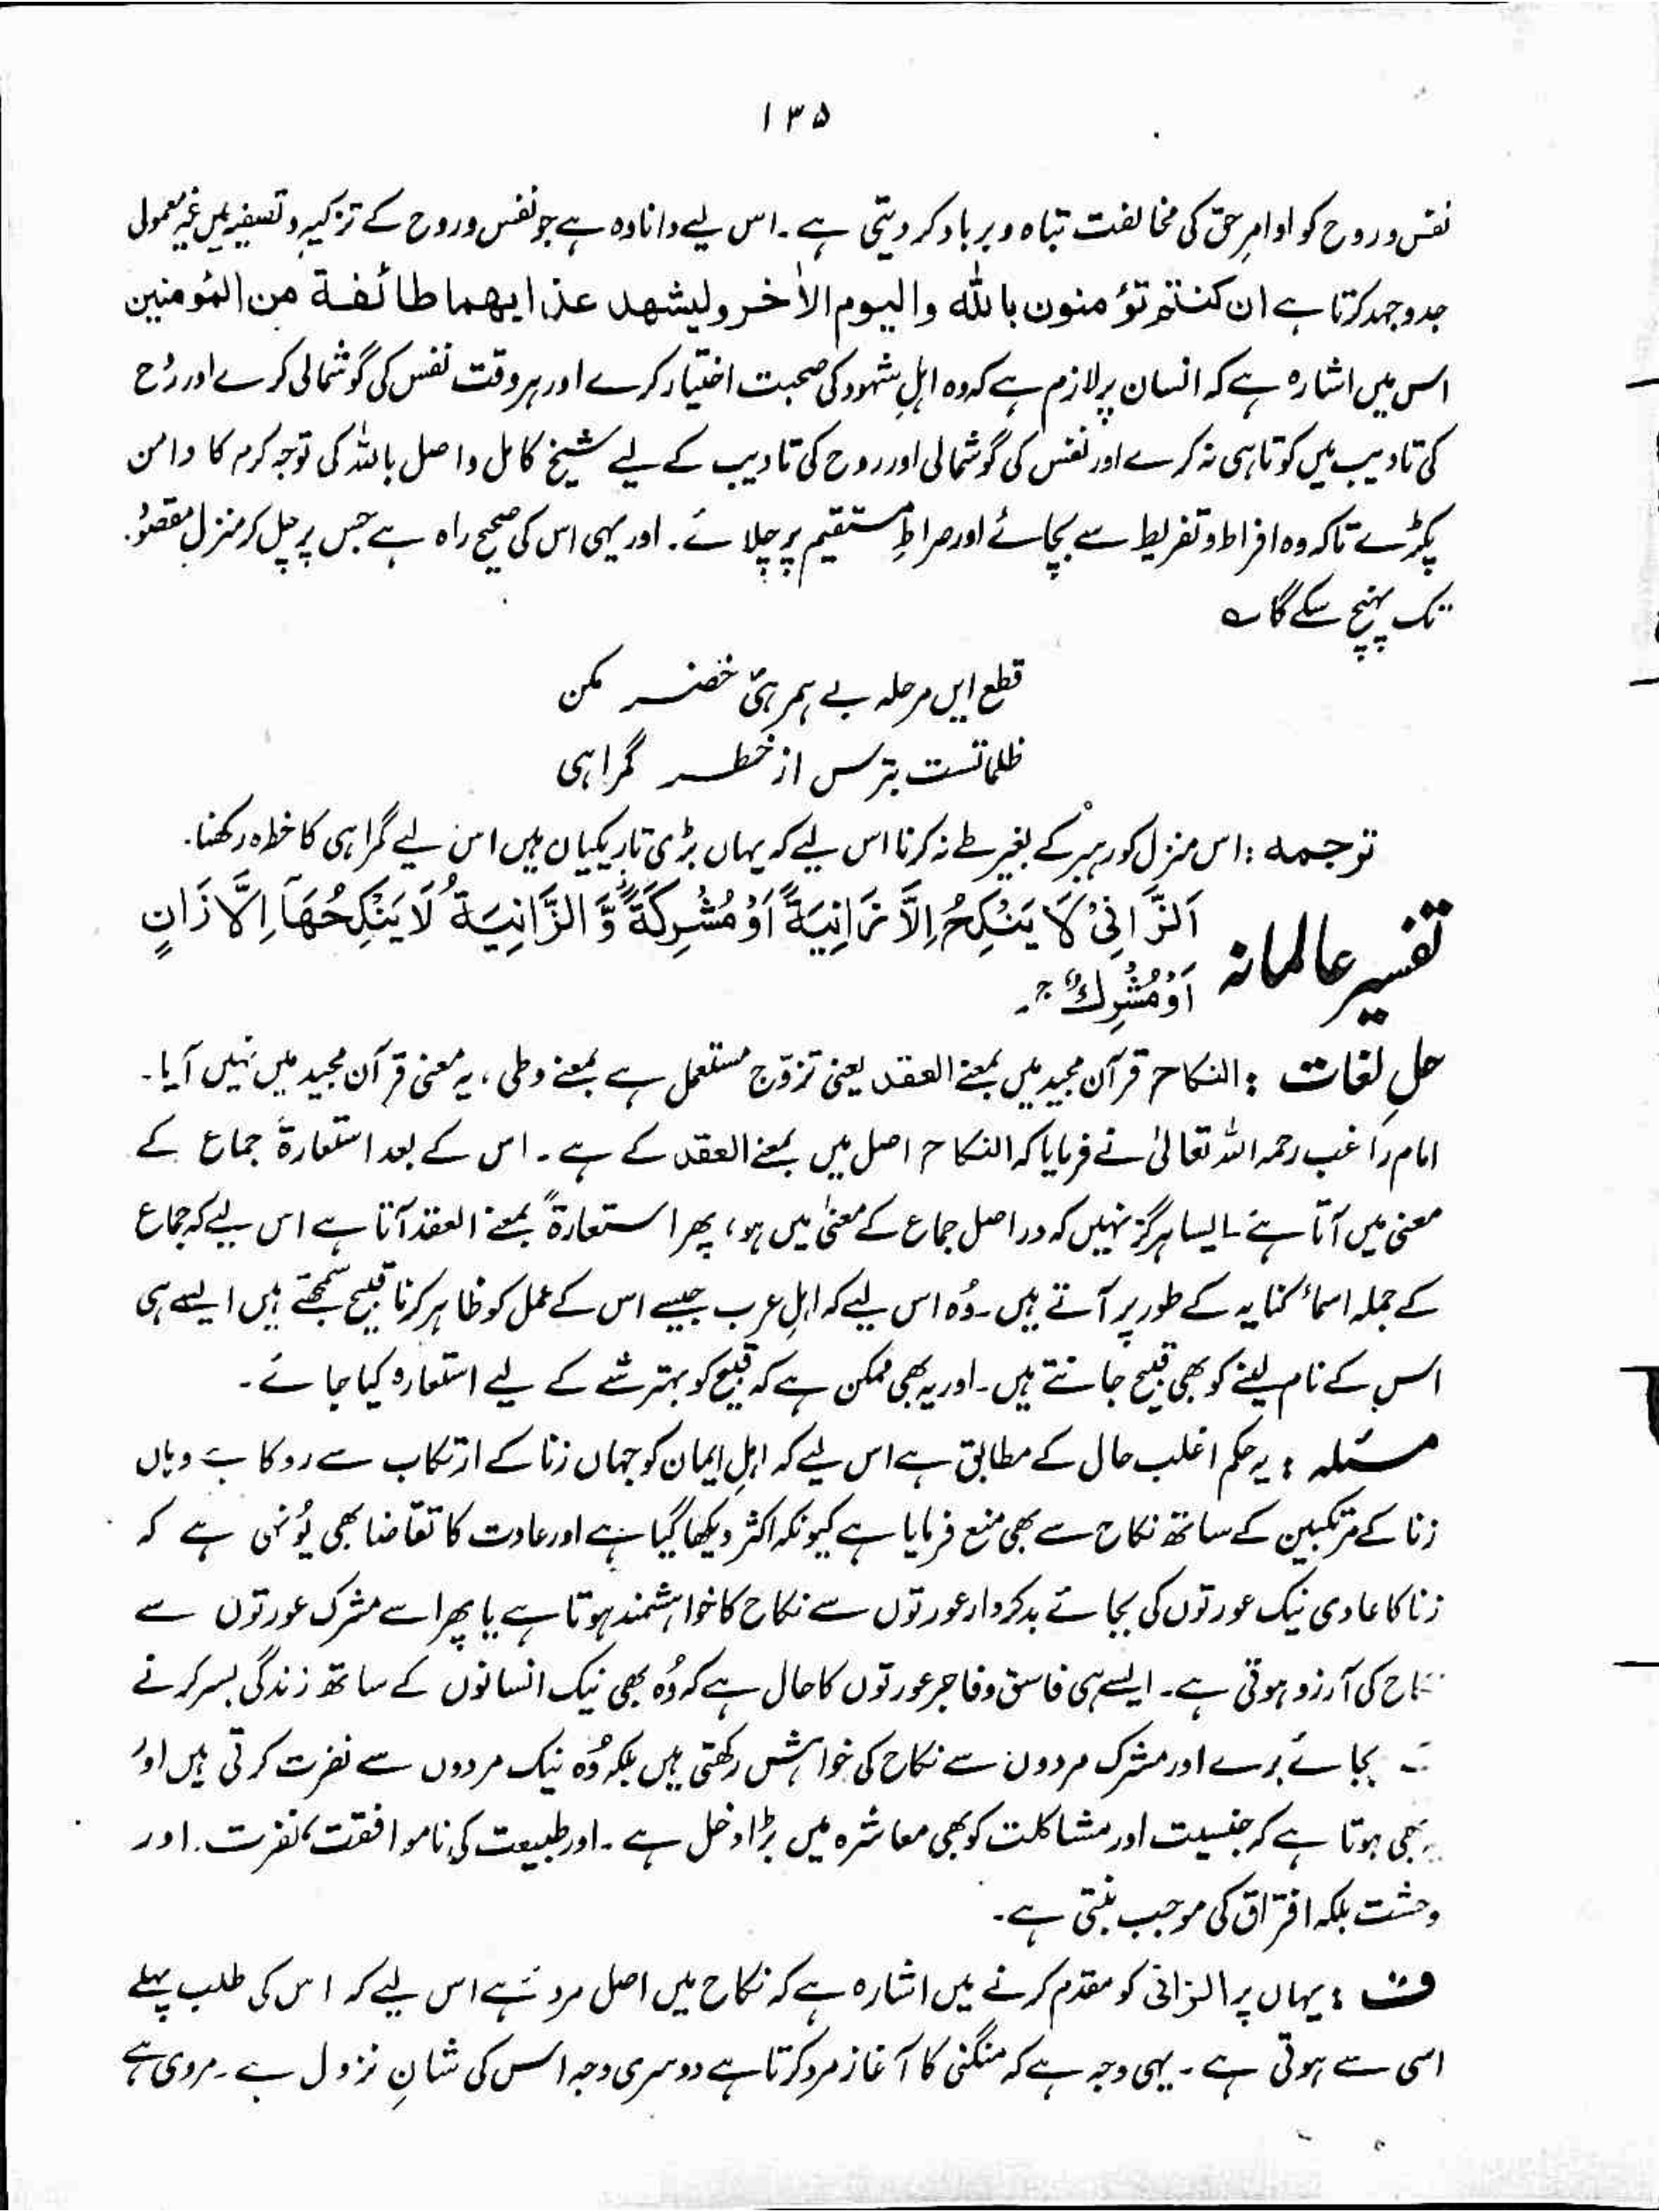 ۱۳۵
نفس و روح کو اوامرِ حق کی مخالفت تباہ و برباد کر دیتی ہے۔ اس لیے دانا وہ ہے جو نفس و روح کے تزکیہ و تصفیہ میں غیر معمولی
جدوجہد کرتا ہے ان کنتم تؤمنون باللہ والیوم الاٰخر ولیشھد عذابھما طائفۃ من المؤمنین
اس میں اشارہ ہے کہ انسان پر لازم ہے کہ وہ اہلِ شہود کی صحبت اختیار کرے اور ہر وقت نفس کی گوشمالی کرے اور رُوح
کی تادیب میں کوتاہی نہ کرے اور نفس کی گوشمالی اور روح کی تادیب کے لیے شیخ کامل واصل باللہ کی توجہ کرم کا دامن
پکڑے تاکہ وہ افراط و تفریط سے بچائے اور صراطِ مستقیم پر چلائے۔ اور یہی اس کی صحیح راہ ہے جس پر چل کر منزل مقصُود
تک پہنچ سکے گا ؎
قطع ایں مرحلہ بے ہمرہیٔ خضر مکن
ظلماتست بترس از خطر گمراہی
توجمہ : اس منزل کو رہبر کے بغیر طے نہ کرنا اس لیے کہ یہاں بڑی تاریکیاں ہیں اس لیے گمراہی کا خطرہ رکھنا۔
تفسیر عالمانہ اَلزَّانِیْ لَا یَنْکِحُ اِلَّا زَانِیَةً اَوْ مُشْرِکَةً وَّ الزَّانِیَةُ لَا یَنْکِحُهَاۤ اِلَّا زَانٍ
اَوْ مُشْرِكٌ ج۔
حلِ لغات : النکاح قرآن مجید میں بمعنے العقد یعنی تزوّج مستعمل ہے بمعنے وطی، یہ معنی قرآن مجید میں نہیں آیا۔
امام راغب رحمہ اللہ تعالیٰ نے فرمایا کہ النکاح اصل میں بمعنے العقد کے ہے۔ اس کے بعد استعارۃً جماع کے
معنی میں آتا ہے۔ ایسا ہرگز نہیں کہ در اصل جماع کے معنیٰ میں ہو، پھر استعارۃً بمعنے العقد آتا ہے اس لیے کہ جماع
کے جملہ اسماء کنایہ کے طور پر آتے ہیں۔ وُہ اس لیے کہ اہلِ عرب جیسے اس کے عمل کو ظاہر کرنا قبیح سمجھتے ہیں ایسے ہی
اس کے نام لینے کو بھی قبیح جانتے ہیں۔ اور یہ بھی ممکن ہے کہ قبیح کو بہتر شے کے لیے استعارہ کیا جائے۔
مسئلہ : یہ حکم اغلب حال کے مطابق ہے اس لیے کہ اہلِ ایمان کو جہاں زنا کے ارتکاب سے روکا ہے وہاں
زنا کے مرتکبین کے ساتھ نکاح سے بھی منع فرمایا ہے کیونکہ اکثر دیکھا گیا ہے اور عادت کا تقاضا بھی یُونہی ہے کہ
زنا کا عادی نیک عورتوں کی بجائے بدکردار عورتوں سے نکاح کا خواہشمند ہوتا ہے یا پھر اسے مشرک عورتوں سے
نکاح کی آرزو ہوتی ہے۔ ایسے ہی فاسق و فاجر عورتوں کا حال ہے کہ وُہ بھی نیک انسانوں کے ساتھ زندگی بسر کرنے
بجائے برے اور مشرک مردوں سے نکاح کی خواہش رکھتی ہیں بلکہ وُہ نیک مردوں سے نفرت کرتی ہیں اور
یہ بھی ہوتا ہے کہ جنسیت اور مشاکلت کو بھی معاشرہ میں بڑا دخل ہے۔ اور طبیعت کی ناموافقت، نفرت اور
وحشت بلکہ افتراق کی موجب بنتی ہے۔
ف : یہاں پر الزانی کو مقدم کرنے میں اشارہ ہے کہ نکاح میں اصل مرد ہے اس لیے کہ اس کی طلب پہلے
اسی سے ہوتی ہے۔ یہی وجہ ہے کہ منگنی کا آغاز مرد کرتا ہے دوسری وجہ اس کی شانِ نزول ہے۔ مروی ہے